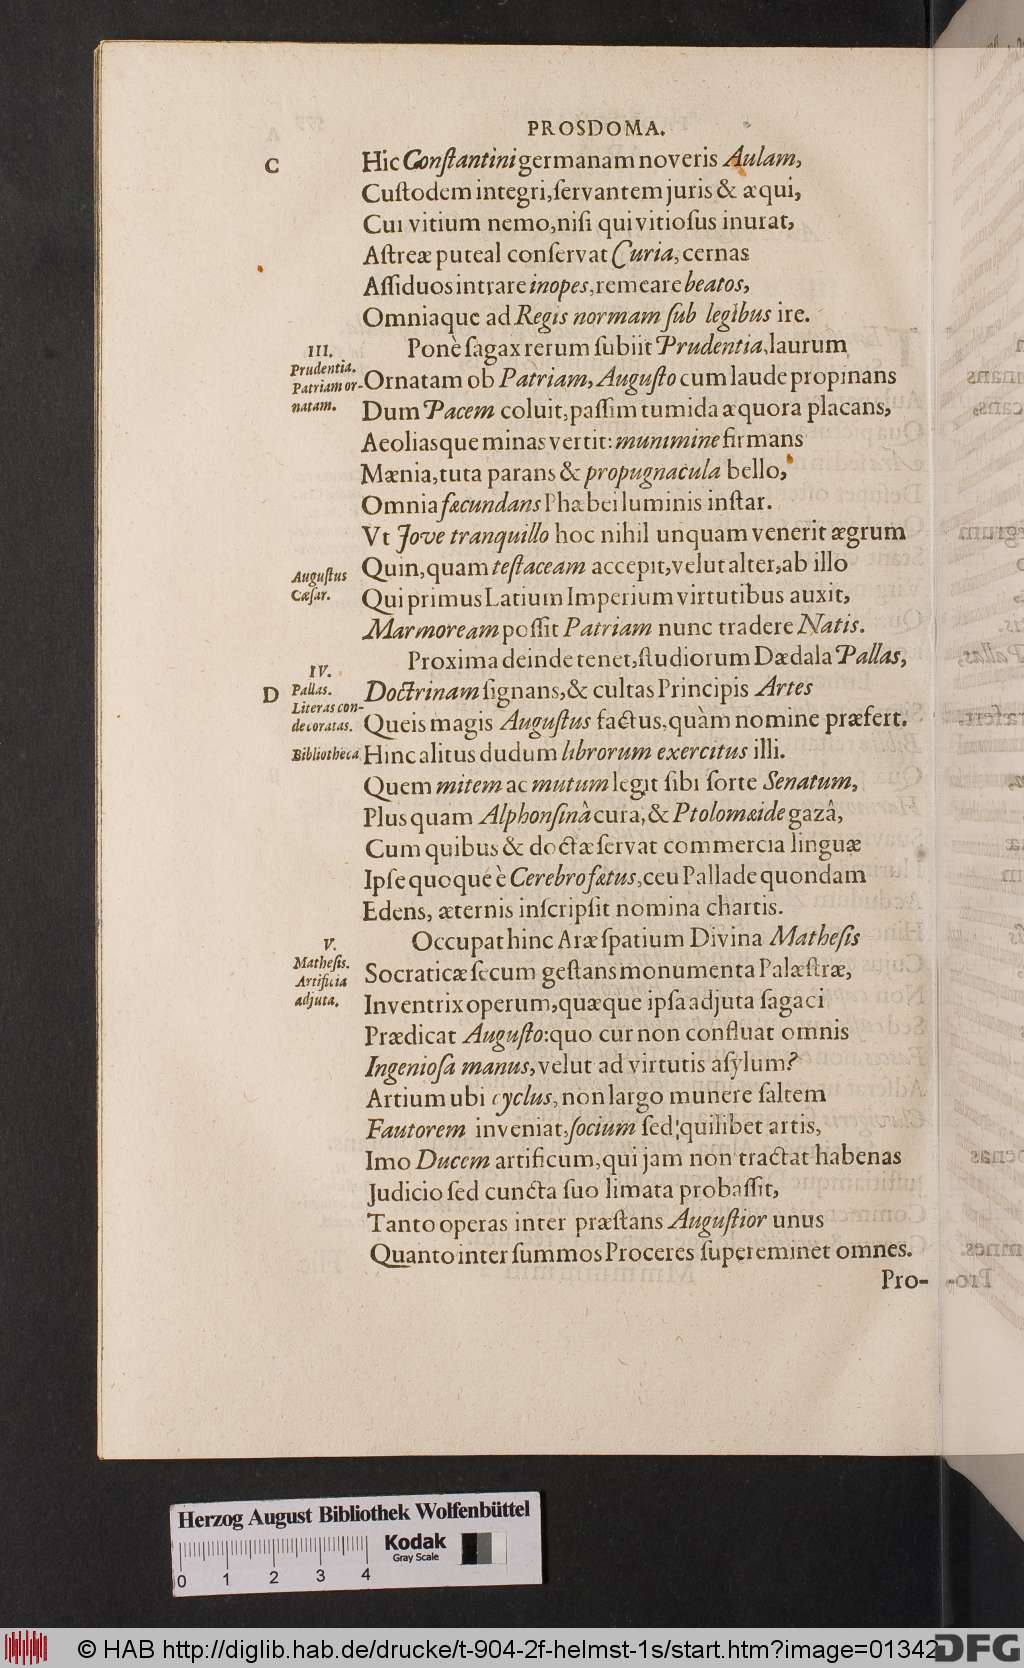 PROSDOMA.
C
Hic Conſtantini germanam noveris Aulam,
Cuſtodem integri, ſervantem juris & æqui,
Cui vitium nemo, niſi qui vitioſus inurat,
Aſtreæ puteal conſervat Curia, cernas
Aſſiduos intrare inopes, remeare beatos,
Omniaque ad Regis normam ſub legibus ire.
III.
Prudentia.
Patriam or-
natam.
Ponè ſagax rerum ſubiit Prudentia, laurum
Ornatam ob Patriam, Auguſto cum laude propinans
Dum Pacem coluit, paſſim tumida æquora placans,
Aeoliasque minas vertit: munimine firmans
Mænia, tuta parans & propugnacula bello,
Omnia fæcundans Phæbei luminis inſtar.
Vt Jove tranquillo hoc nihil unquam venerit ægrum
Auguſtus
Cæſar.
Quin, quam teſtaceam accepit, velut alter, ab illo
Qui primus Latium Imperium virtutibus auxit,
Marmoream poſſit Patriam nunc tradere Natis.
IV.
Pallas.
Literas con-
decoratas.
Bibliotheca
Proxima deinde tenet, ſtudiorum Dædala Pallas,
D
Doctrinam ſignans, & cultas Principis Artes
Queis magis Auguſtus factus, quàm nomine præfert.
Hinc alitus dudum librorum exercitus illi.
Quem mitem ac mutum legit ſibi ſorte Senatum,
Plus quam Alphonſinâ cura, & Ptolomæide gazâ,
Cum quibus & doctæ ſervat commercia linguæ
Ipſe quoque è Cerebro fætus, ceu Pallade quondam
Edens, æternis inſcripſit nomina chartis.
V.
Matheſis.
Artificia
adjuta.
Occupat hinc Aræ ſpatium Divina Matheſis
Socraticæ ſecum geſtans monumenta Palæſtræ,
Inventrix operum, quæque ipſa adjuta ſagaci
Prædicat Auguſto: quo cur non confluat omnis
Ingenioſa manus, velut ad virtutis aſylum?
Artium ubi cyclus, non largo munere ſaltem
Fautorem inveniat, ſocium ſed quilibet artis,
Imo Ducem artificum, qui jam non tractat habenas
Judicio ſed cuncta ſuo limata probaſſit,
Tanto operas inter præſtans Auguſtior unus
Quanto inter ſummos Proceres ſupereminet omnes.
Pro-
Herzog August Bibliothek Wolfenbüttel
Kodak
Gray Scale
0 1 2 3 4
© HAB http://diglib.hab.de/drucke/t-904-2f-helmst-1s/start.htm?image=01342
DFG